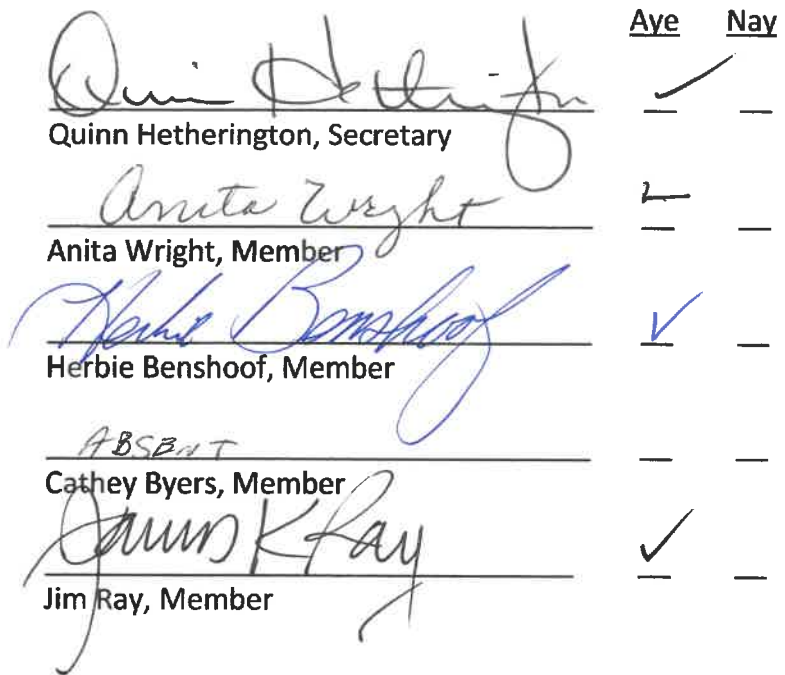 Aye Nay
Quinn Hetherington
Quinn Hetherington, Secretary
Anita Wright
Anita Wright, Member
Herbie Benshoof
Herbie Benshoof, Member
ABSENT
Cathey Byers, Member
James K Ray
Jim Ray, Member